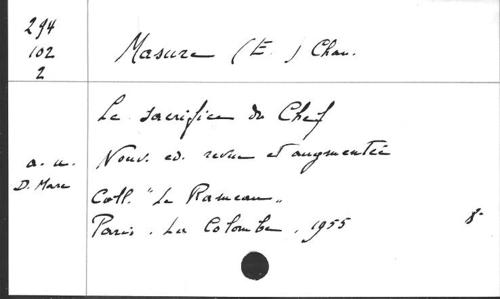 294
102
2
Masure (E.) Chan.
Le sacrifice du Chef
Nouv. ed. revue et augmentée
Coll. "Le Rameau"
Paris. La Colombe, 1955
8-
a. u.
D. Marc